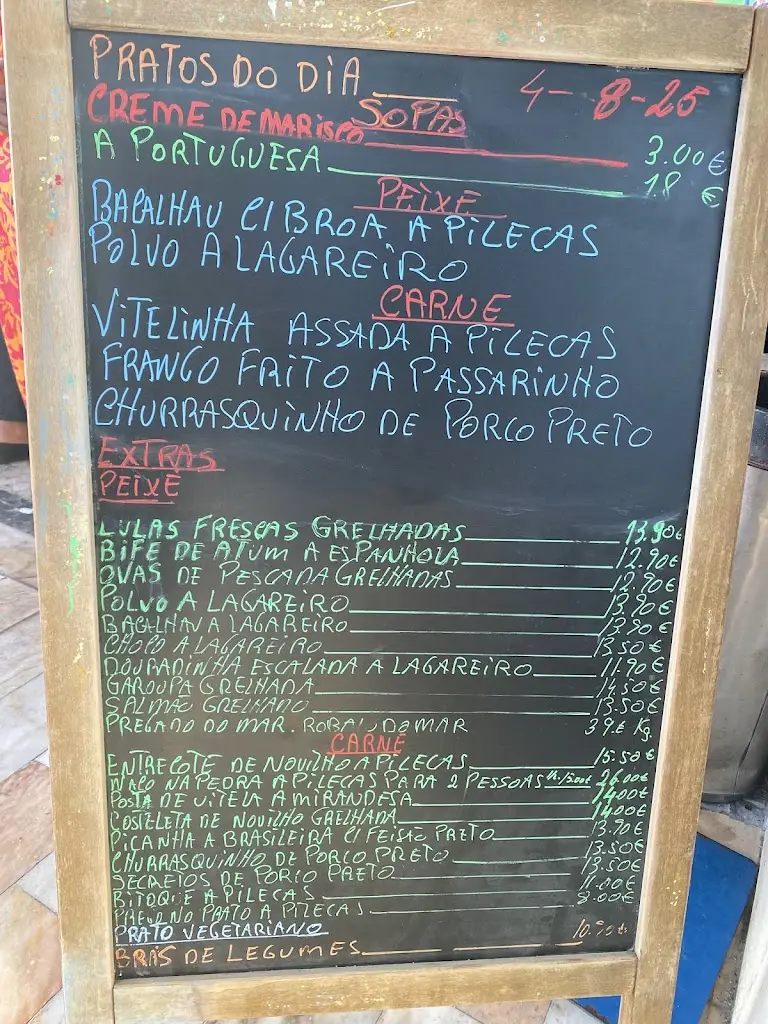 PRATOS DO DIA 4-8-25
SOPAS
CREME DE MARISCO 3.00€
A PORTUGUESA 1.8 €
PEIXE
BACALHAU C/ BROA A PILECAS
POLVO A LAGAREIRO
CARNE
VITELINHA ASSADA A PILECAS
FRANGO FRITO A PASSARINHO
CHURRASQUINHO DE PORCO PRETO
EXTRAS
PEIXE
LULAS FRESCAS GRELHADAS 13.90€
BIFE DE ATUM A ESPANHOLA 12.90€
OVAS DE PESCADA GRELHADAS 12.90€
POLVO A LAGAREIRO 13.90€
BACALHAU A LAGAREIRO 13.90€
CHOCO A LAGAREIRO 13.50€
DOURADINHA ESCALADA A LAGAREIRO 11.90€
GAROUPA GRELHADA 14.50€
SALMAO GRELHADO 13.50€
PREGADO DO MAR. ROBALO DO MAR 39.€ Kg.
CARNE
ENTRECOTE DE NOVILHO A PILECAS 15.50€
NACO NA PEDRA A PILECAS PARA 2 PESSOAS 26.00€
POSTA DE VITELA A MIRANDESA 14.00€
COSTELETA DE NOVILHO GRELHADA 14.00€
PICANHA A BRASILEIRA C/ FEIJAO PRETO 13.90€
CHURRASQUINHO DE PORCO PRETO 13.50€
SECRETOS DE PORCO PRETO 13.50€
BITOQUE A PILECAS 11.00€
PREGO NO PRATO A PILECAS 8.00€
PRATO VEGETARIANO
BRAS DE LEGUMES 10.90€